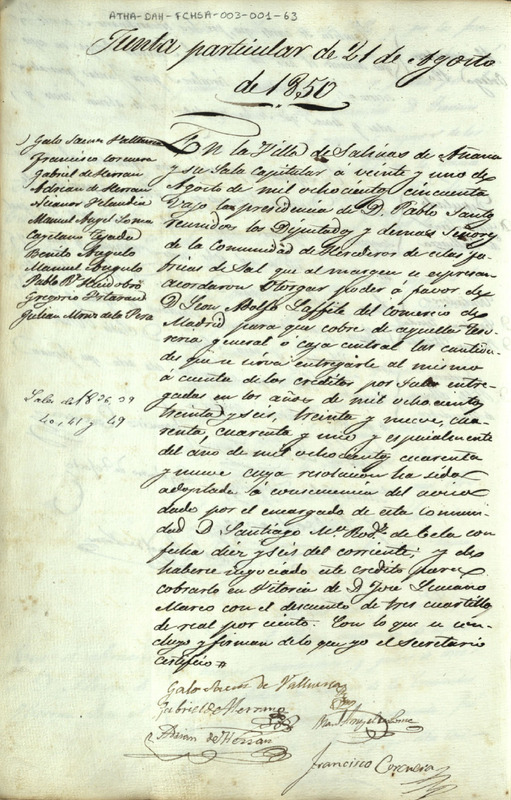 ATHA-DAH-FCHSA-003-001-63
Junta particular de 21 de Agosto
de 1850
Galo Saenz Valluerca
Francisco Corcuera
Gabriel de Herran
Adrian de Herran
Nicanor Velandia
Manuel Angel Loma
Cayetano
Benito Angulo
Manuel Angulo
Pablo Rz Huidobro
Gregorio
Julian Monz de la Pera
Sales de 1836, 39
40, 41 y 49
En la Villa de Salinas de Añana
y su Sala Capitular a veinte y uno de
Agosto de mil ochocientos cincuenta
vajo la presidencia de D. Pablo Santos
reunidos los Diputados y demas Señores
de la Comunidad de Herederos de estas fa-
bricas de Sal que al margen se espresan
acordaron Otorgar poder a favor de
D Leon Adolfo Laffite del comercio de
Madrid para que cobre de aquella Teso-
reria general o caja central las cantida-
des que se sirva entregarle al mismo
á cuenta de los creditos por Sales entre-
gadas en los años de mil ochocientos
treinta y seis, treinta y nueve, cua-
renta, cuarenta y uno y especialmente
del año de mil ochocientos cuarenta
y nueve cuya resolucion ha sido
adoptada á consecuencia del aviso
dado por el encargado de esta comuni-
dad D Santiago Mª Rodz de Cela con
fecha diez y seis del corriente, y de
haberse negociado este credito para
cobrarlo en Vitoria de D José Luciano
Marco con el descuento de tres cuartillos
de real por ciento. Con lo que se con-
cluyo y firman de lo que yo el Secretario
certifico
Galo Saenz de Valluerca
Gabriel de Herran
Man Angel de Loma
Adrian de Herran
Francisco Corcuera